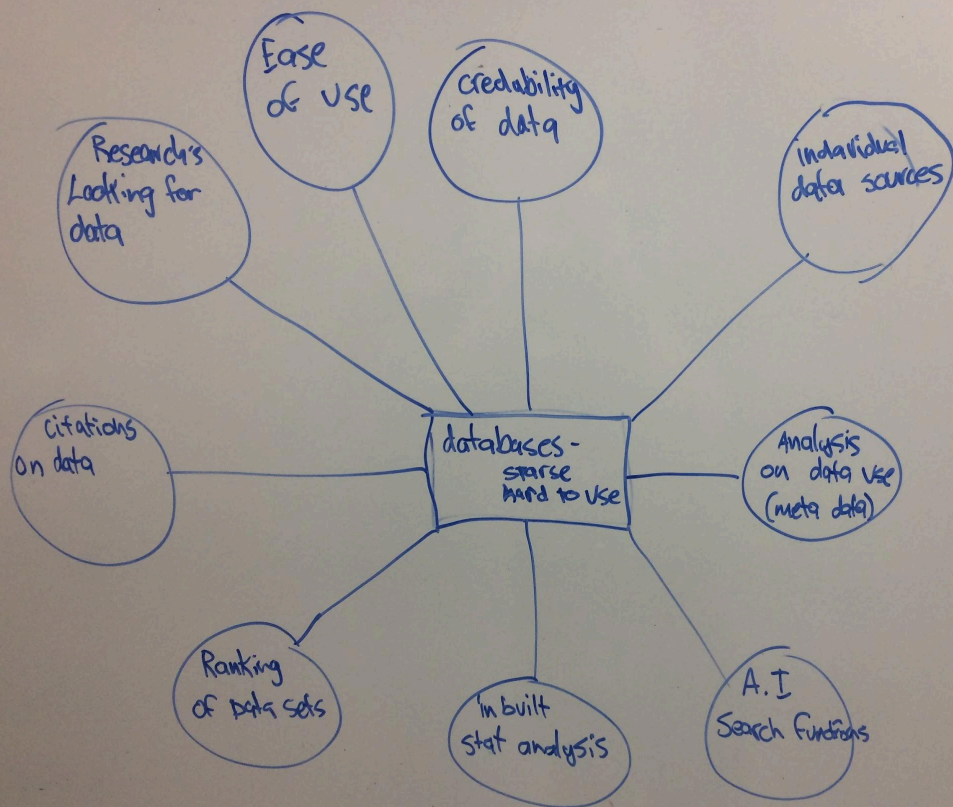 Ease
of use
credability
of data
Research's
Looking for
data
indavidual
data sources
citations
on data
databases -
sparse
hard to use
Analysis
on data use
(meta data)
Ranking
of Data sets
inbuilt
stat analysis
A.I
Search functions